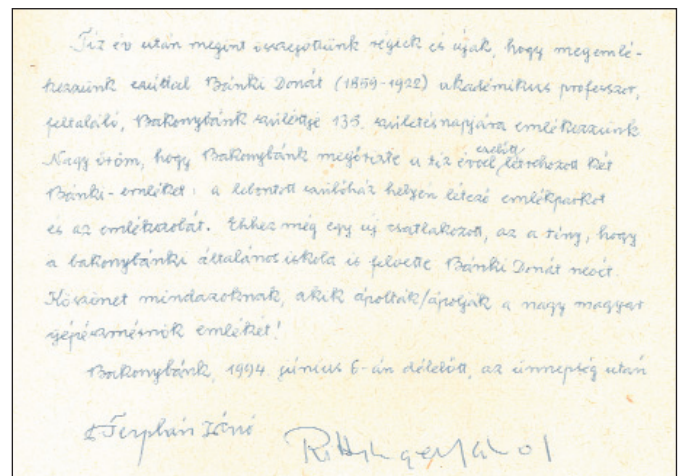 Tíz év után megint összegyűltünk régiek és újak, hogy megemlé-
kezzünk ezúttal Bánki Donát (1859-1922) akadémikus professzor,
feltaláló, Bakonybánk szülöttje 135. születésnapjára emlékezzünk
Nagy öröm, hogy Bakonybánk megőrizte a tíz évvel ezelőtt létrehozott két
Bánki-emléket: a lebontott szülőház helyén létező emlékparkot
és az emlékszobát. Ehhez még egy új csatlakozott, az a tény, hogy
a bakonybánki általános iskola is felvette Bánki Donát nevét.
Köszönet mindazoknak, akik ápolták/ápolják a nagy magyar
gépészmérnök emlékét!
Bakonybánk, 1994. június 6-án délelőtt, az ünnepség után
Terplán Zénó